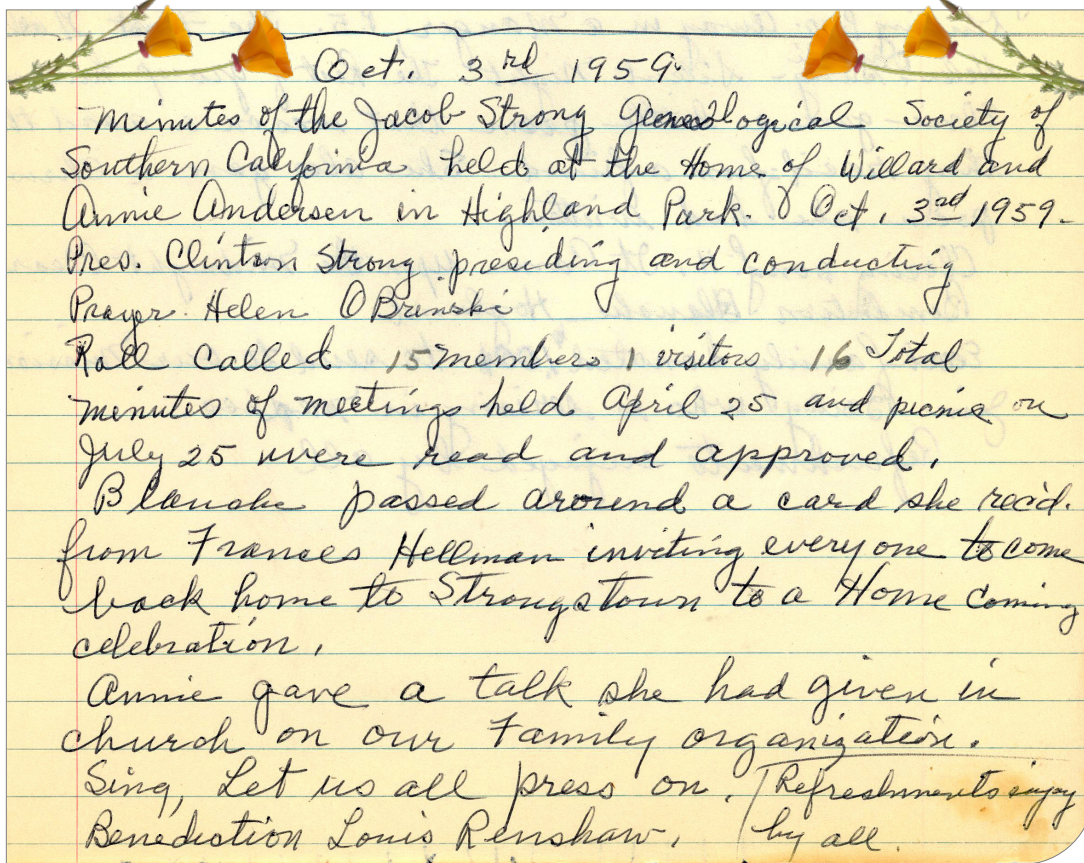 Oct. 3rd 1959.
Minutes of the Jacob Strong Genealogical Society of
Southern California held at the Home of Willard and
Annie Andersen in Highland Park. Oct. 3rd 1959.
Pres. Clinton Strong presiding and conducting
Prayer. Helen OBrinski
Roll called 15 members 1 visitors 16 Total
Minutes of meetings held April 25 and picnic on
July 25 were read and approved.
Blanche passed around a card she rec'd.
from Frances Hellman inviting everyone to come
back home to Strongstown to a Home coming
celebration.
Annie gave a talk she had given in
church on our Family organization.
Sing, Let us all press on. / Refreshments enjoy
Benediction Louis Renshaw. / by all.